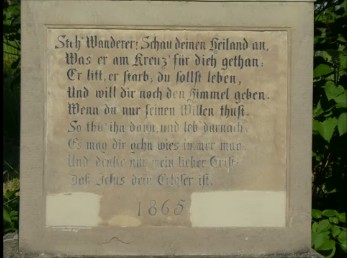 Steh' Wanderer; Schau deinen Heiland an,
Was er am Kreuz' für dich gethan:
Er litt, er starb, du sollst leben,
Und will dir noch den Himmel geben.
Wenn du nur seinen Willen thust.
So thu' ihn dann, und leb darnach
Es mag dir gehn wies immer mag
Und denke nur mein lieber Christ
Daß Jesus dein Erlöser ist.
1865